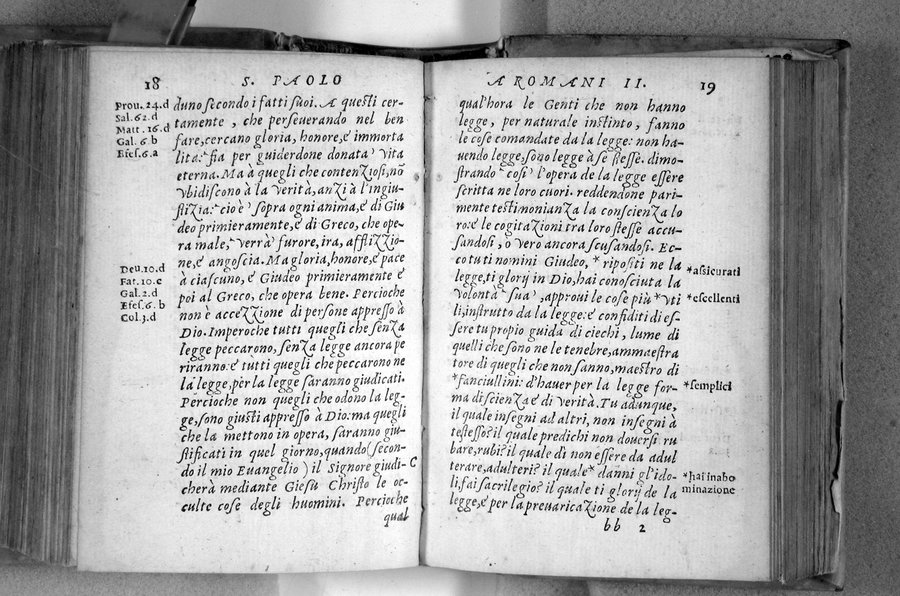 18 S. PAOLO
Prou. 24.d
Sal. 62.d
Matt. 16.d
Gal. 6 b
Efes. 6.a
duno secondo i fatti suoi. A questi cer-
tamente, che perseuerando nel ben
fare, cercano gloria, honore, e immorta
lita: fia per guiderdone donata vita
eterna. Ma à quegli che contenziosi, nō
vbidiscono à la verità, anzi à l'ingiu-
stizia: cio è sopra ogni anima, e di Giu
deo primieramente, e di Greco, che ope-
ra male, verrà furore, ira, afflizzio-
ne, e angoscia. Ma gloria, honore, e pace
à ciascuno, e Giudeo primieramente e
poi al Greco, che opera bene. Percioche
non è accezzione di persone appresso à
Dio. Imperoche tutti quegli che senza
legge peccarono, senza legge ancora pe
riranno: e tutti quegli che peccarono ne
la legge, per la legge saranno giudicati.
Percioche non quegli che odono la leg-
ge, sono giusti appresso à Dio: ma quegli
che la mettono in opera, saranno giu-
stificati in quel giorno, quando (secon-
do il mio Euangelio) il Signore giudi-
cherà mediante Giesu Christo le oc-
culte cose degli huomini. Percioche
qual
Deu. 10.d
Fat. 10.e
Gal. 2.d
Efes. 6. b
Col. 3.d
C
A ROMANI II. 19
qual'hora le Genti che non hanno
legge, per naturale instinto, fanno
le cose comandate da la legge: non ha-
uendo legge, sono legge à se stesse. dimo-
strando così l'opera de la legge essere
scritta ne loro cuori. reddendone pari-
mente testimonianza la conscienza lo
ro: e le cogitazioni tra loro stesse accu-
sandosi, o vero ancora scusandosi. Ec-
co tu ti nomini Giudeo, * ripositi ne la
legge, ti glorij in Dio, hai conosciuta la
volontà sua, approui le cose più * vti
li, instrutto da la legge: e confiditi di es-
sere tu propio guida di ciechi, lume di
quelli che sono ne le tenebre, ammaestra
tore di quegli che non sanno, maestro di
* fanciullini: d'hauer per la legge for-
ma di scienza e di verità. Tu adunque,
il quale insegni ad altri, non insegni à
te stesso? il quale predichi non douersi ru
bare, rubi? il quale di non essere da adul
terare, adulteri? il quale * danni gl'ido-
li, fai sacrilegio? il quale ti glorij de la
legge, e per la preuaricazione de la leg-
bb 2
*assicurati
*escellenti
*semplici
*hai in abo
minazione